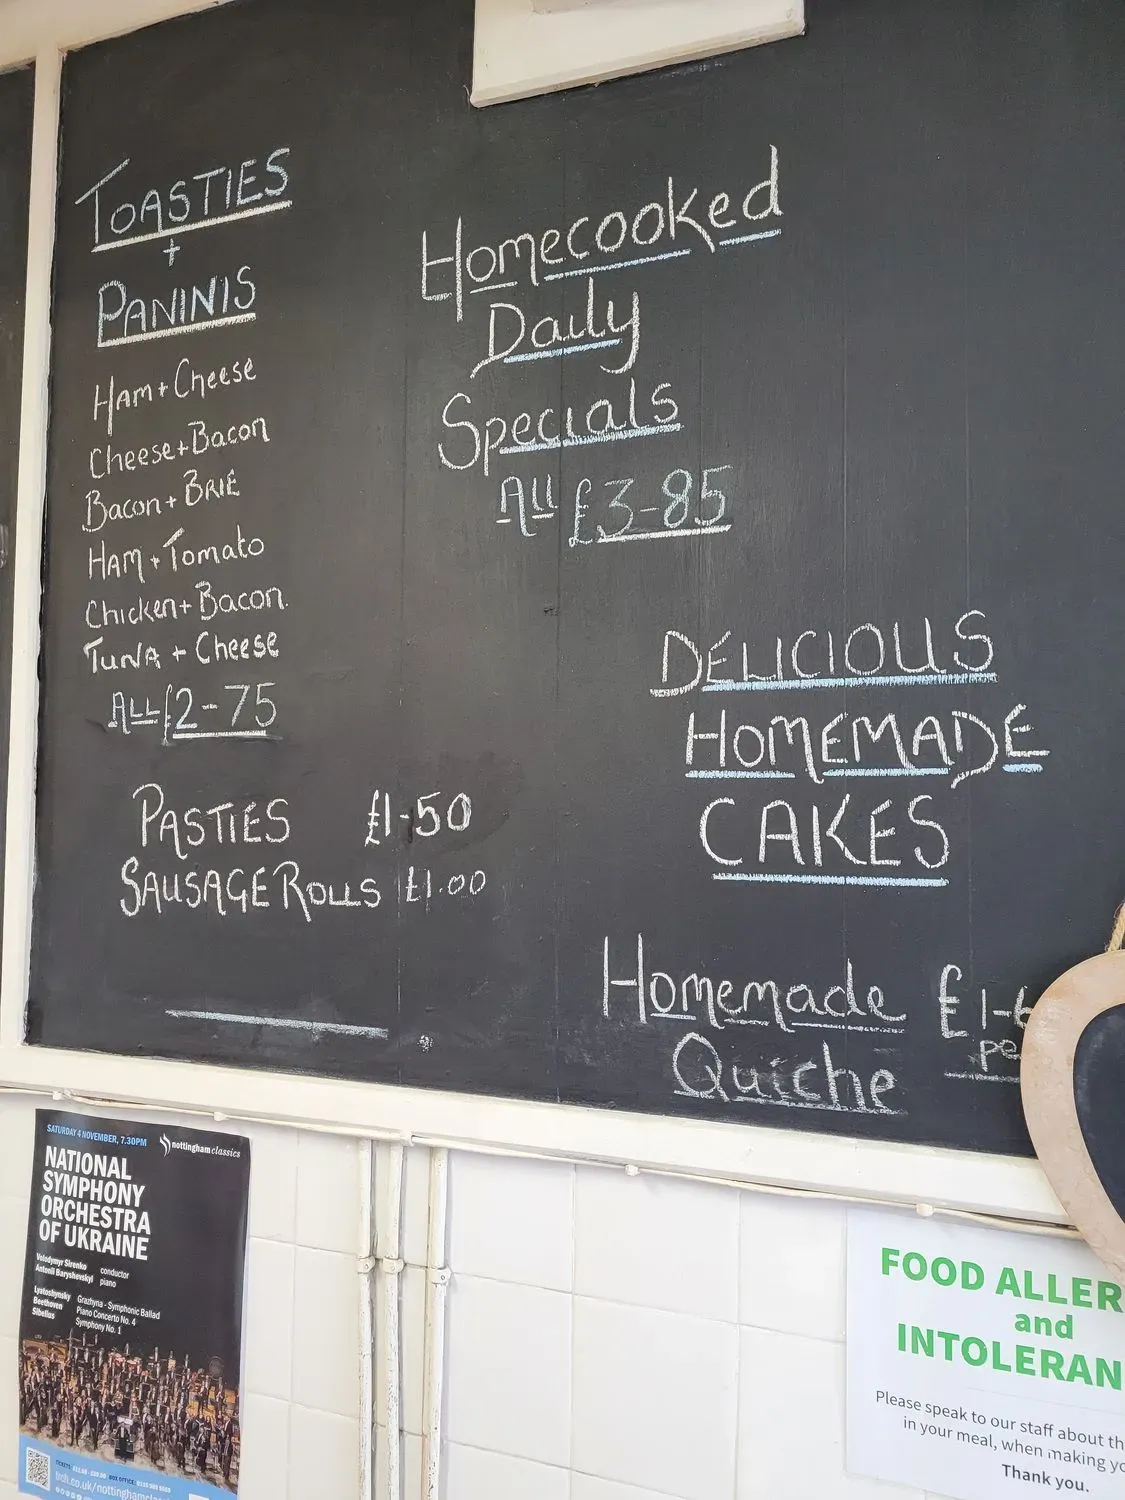 TOASTIES
+
PANINIS
Ham + Cheese
Cheese + Bacon
Bacon + BRIE
HAM + Tomato
Chicken + Bacon.
TUNA + Cheese
ALL £2-75
PASTIES £1-50
SAUSAGE ROLLS £1.00
Homecooked
Daily
Specials
All £3-85
DELICIOUS
HOMEMADE
CAKES
Homemade £1-6
Quiche pe
SATURDAY 4 NOVEMBER, 7.30PM
nottingham classics
NATIONAL
SYMPHONY
ORCHESTRA
OF UKRAINE
Volodymyr Sirenko conductor
Antonii Baryshevskyi piano
Lyatoshynsky Grazhyna - Symphonic Ballad
Beethoven Piano Concerto No. 4
Sibelius Symphony No. 1
TICKETS BOX OFFICE
trch.co.uk/nottinghamclas
FOOD ALLER
and
INTOLERAN
Please speak to our staff about th
in your meal, when making yo
Thank you.